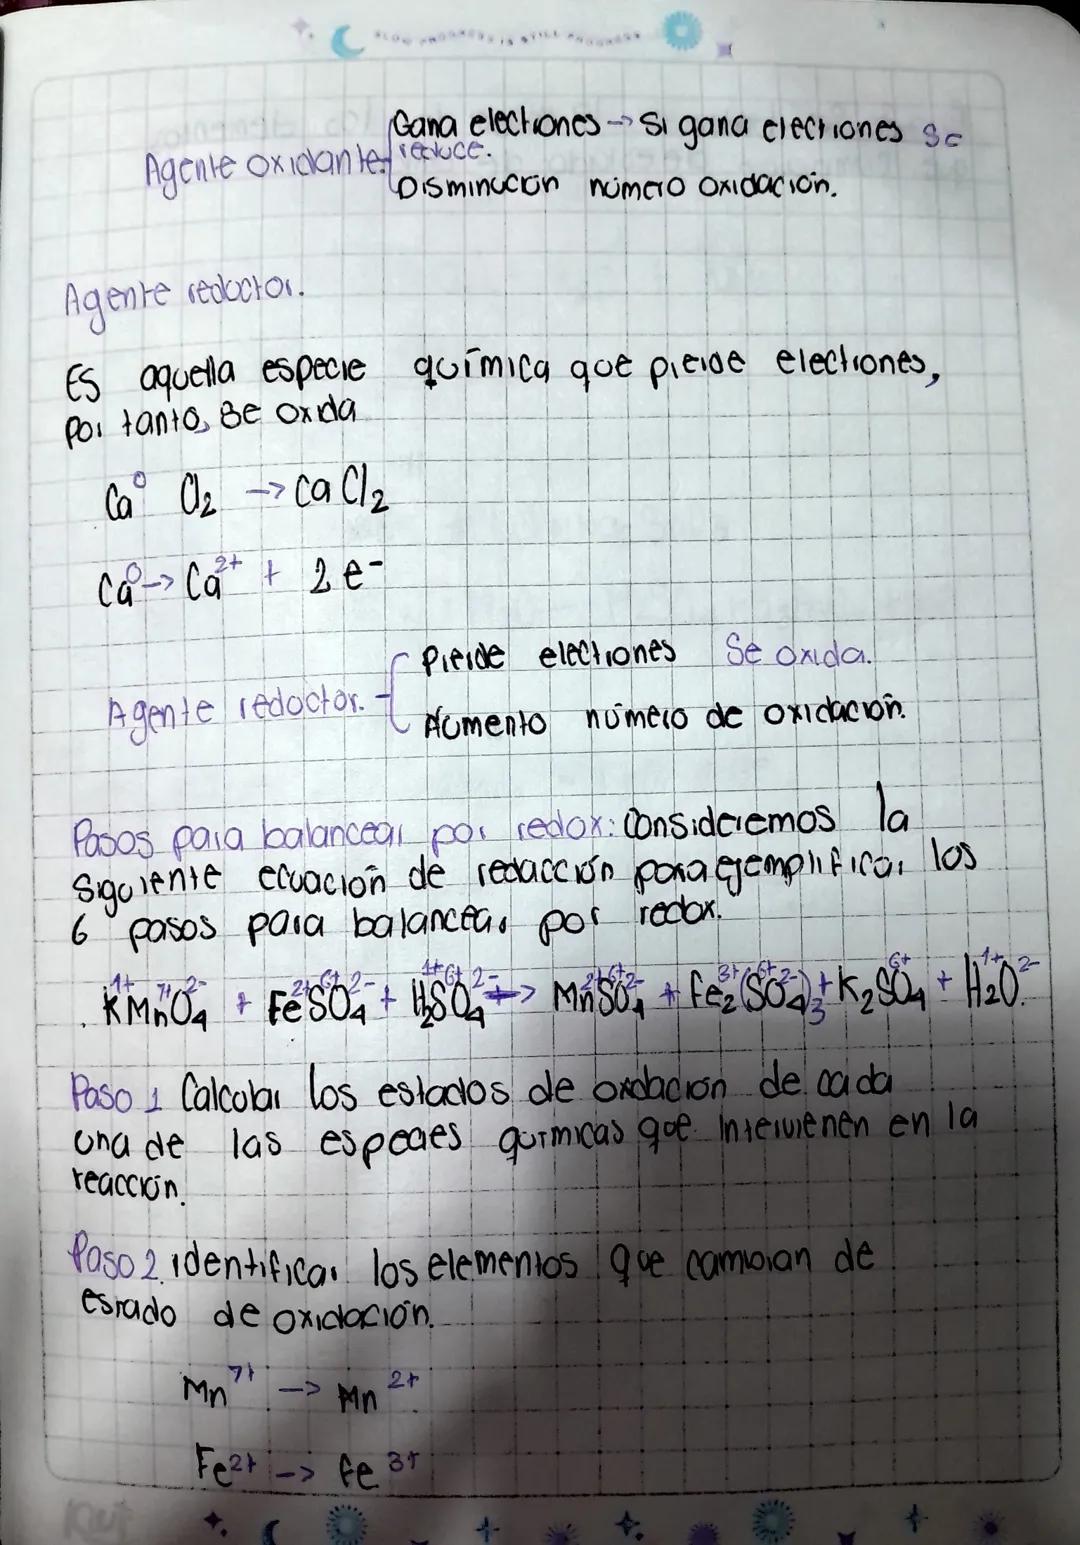 SLOW PROGRESS IS STILL PROGRESS
Gana electrones -> Si gana electrones se
Agente oxidante. reduce.
Disminución número oxidación.
Agente reductor.
Es aquella especie química que pierde electrones,
por tanto, se oxida
Ca⁰ Cl₂ -> CaCl₂
Ca⁰ -> Ca²⁺ + 2e⁻
Pierde electrones Se oxida.
Agente reductor.
Aumento número de oxidación.
Pasos para balancear por redox: Consideremos la
siguiente ecuación de redacción para ejemplificar los
6 pasos para balancear por redox.
1+ 7+ 2- 2+ 6+ 2- 1+ 6+ 2- 2+ 6+ 2- 3+ 6+ 2- 6+ 1+ 2-
KMnO₄ + FeSO₄ + H₂SO₄ -> MnSO₄ + Fe₂(SO₄)₃ + K₂SO₄ + H₂O.
Paso 1 Calcular los estados de oxidación de cada
una de las especies químicas que intervienen en la
reacción.
Paso 2. identificar los elementos que cambian de
estado de oxidación.
Mn⁷⁺ -> Mn²⁺
Fe²⁺ -> Fe³⁺